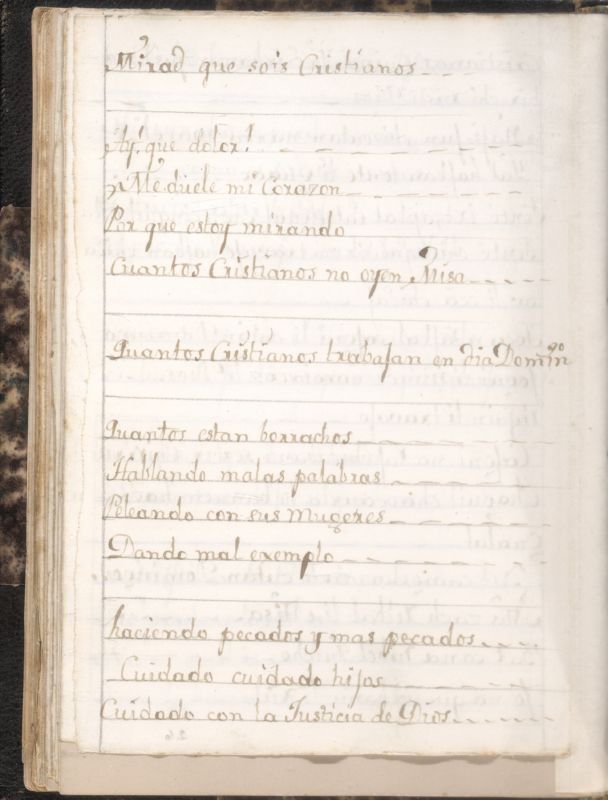 Mirad que sois Cristianos
Ay, que dolor!
Me duele mi Corazon
Por que estoy mirando
Cuantos Cristianos no oyen Misa
Quantos Cristianos trabajan en dia Domingo
Quantos estan borrachos
Hablando malas palabras
Peleando con sus Mugeres
Dando mal exemplo
haciendo pecados y mas pecados
Cuidado cuidado hijos
Cuidado con la Justicia de Dios